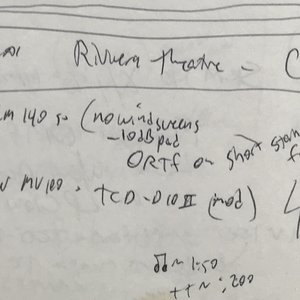 Riviera Theatre - C
m 140 s (no windscreens
-10dB pad
ORTF on short stand
MV100 • TCD-D10 II (mod)
~ 1:50
~ :200